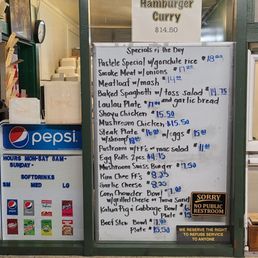 Hamburger
Curry
$14.50
Specials of the Day
Pastele Special w/gandule rice $18.00
Smoke Meat w/onions $17.00
Meatloaf w/mash $14.00
Baked Spaghetti w/toss salad $14.75
and garlic bread
Laulau Plate
Shoyu Chicken $15.50
Mushroom Chicken $15.50
Steak Plate w/eggs
Pastrami w/FF's mac salad $11.00
Egg Rolls 2pcs
Mushroom Swiss Burger $7.50
Kim Chee FF's $8.25
Garlic Cheese $8.25
Corn Chowder Bowl
w/grilled Cheese Tuna Sand
Kalua Pig & Cabbage Bowl
Plate
Beef Stew Bowl
Plate $15.50
pepsi
HOURS MON-SAT 8AM-
SUNDAY-
SOFTDRINKS
SM MED LG
SORRY
NO PUBLIC
RESTROOM
WE RESERVE THE RIGHT
TO REFUSE SERVICE
TO ANYONE